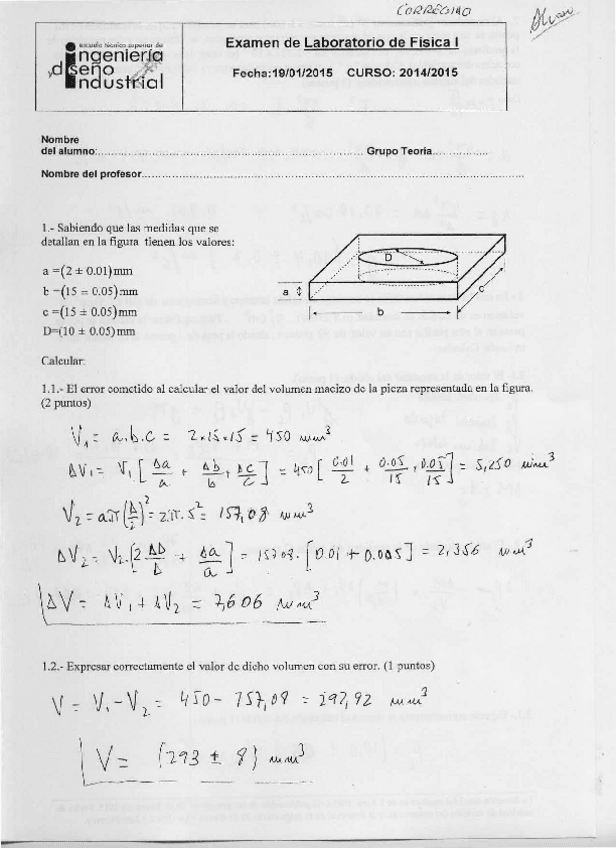 CORREGIDO
escuela técnica superior de
ingeniería
y diseño
industrial
Examen de Laboratorio de Física I
Fecha:19/01/2015 CURSO: 2014/2015
Nombre
del alumno: Grupo Teoría
Nombre del profesor
1.- Sabiendo que las medidas que se
detallan en la figura tienen los valores:
a =(2 ± 0.01)mm
b =(15 ± 0.05)mm
c =(15 ± 0.05)mm
D=(10 ± 0.05)mm
D
a
b
c
Calcular:
1.1.- El error cometido al calcular el valor del volumen macizo de la pieza representada en la figura.
(2 puntos)
V₁ = a.b.c = 2×15×15 = 450 mm³
ΔV₁ = V₁ [Δa/a + Δb/b + Δc/c] = 450 [0.01/2 + 0.05/15 + 0.05/15] = 5,250 mm³
V₂ = aπ(D/2)² = 2.π.5² = 157,08 mm³
ΔV₂ = V₂.[2 ΔD/D + Δa/a] = 157.08.[0.01 + 0.005] = 2,356 mm³
ΔV = ΔV₁ + ΔV₂ = 7,606 mm³
1.2.- Expresar correctamente el valor de dicho volumen con su error. (1 puntos)
V = V₁ - V₂ = 450 - 157,08 = 292,92 mm³
V = (293 ± 8) mm³